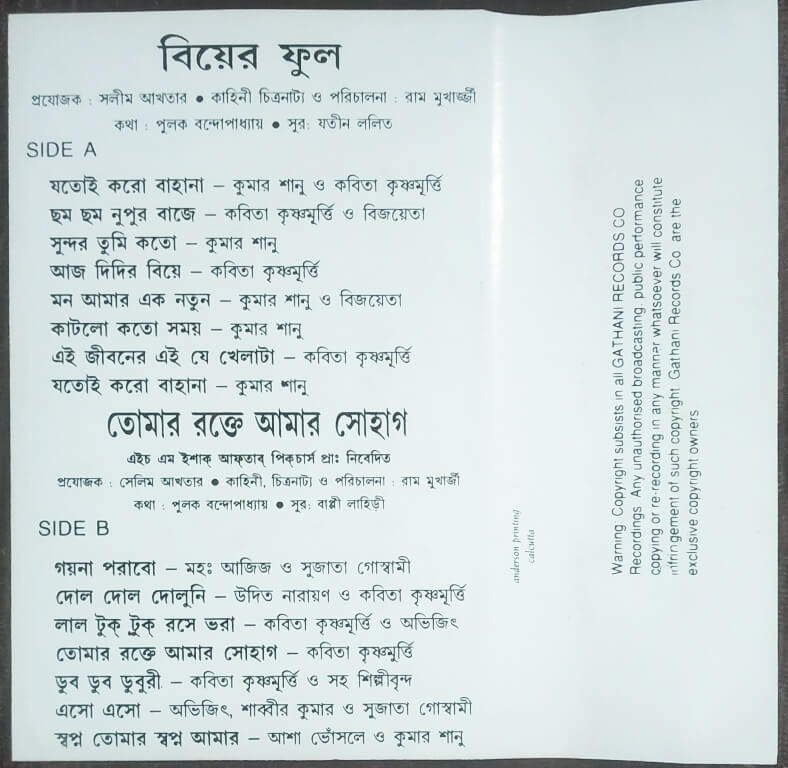 বিয়ের ফুল
প্রযোজক : সলীম আখতার ● কাহিনী চিত্রনাট্য ও পরিচালনা : রাম মুখার্জ্জী
কথা : পুলক বন্দোপাধ্যায় ● সুর: যতীন ললিত
SIDE A
যতোই করো বাহানা – কুমার শানু ও কবিতা কৃষ্ণমূর্ত্তি
ছম ছম নুপুর বাজে – কবিতা কৃষ্ণমূর্ত্তি ও বিজয়েতা
সুন্দর তুমি কতো – কুমার শানু
আজ দিদির বিয়ে – কবিতা কৃষ্ণমূর্ত্তি
মন আমার এক নতুন – কুমার শানু ও বিজয়েতা
কাটলো কতো সময় – কুমার শানু
এই জীবনের এই যে খেলাটা – কবিতা কৃষ্ণমূর্ত্তি
যতোই করো বাহানা – কুমার শানু
তোমার রক্তে আমার সোহাগ
এইচ এম ইশাক্ আফ্তাব্ পিক্চার্স প্রাঃ নিবেদিত
প্রযোজক : সেলিম আখতার ● কাহিনী, চিত্রনাট্য ও পরিচালনা : রাম মুখার্জী
কথা : পুলক বন্দোপাধ্যায় ● সুর: বাপ্পী লাহিড়ী
SIDE B
গয়না পরাবো – মহঃ আজিজ ও সুজাতা গোস্বামী
দোল দোল দোলুনি – উদিত নারায়ণ ও কবিতা কৃষ্ণমূর্ত্তি
লাল টুক্ টুক্ রসে ভরা – কবিতা কৃষ্ণমূর্ত্তি ও অভিজিৎ
তোমার রক্তে আমার সোহাগ – কবিতা কৃষ্ণমূর্ত্তি
ডুব ডুব ডুবুরী – কবিতা কৃষ্ণমূর্ত্তি ও সহ শিল্পীবৃন্দ
এসো এসো – অভিজিৎ, শাব্বীর কুমার ও সুজাতা গোস্বামী
স্বপ্ন তোমার স্বপ্ন আমার – আশা ভোঁসলে ও কুমার শানু
anderson printing
calcutta
Warning Copyright subsists in all GATHANI RECORDS CO
Recordings Any unauthorised broadcasting. public performance
copying or re-recording in any manner whatsoever will constitute
infringement of such copyright Gathani Records Co are the
exclusive copyright owners